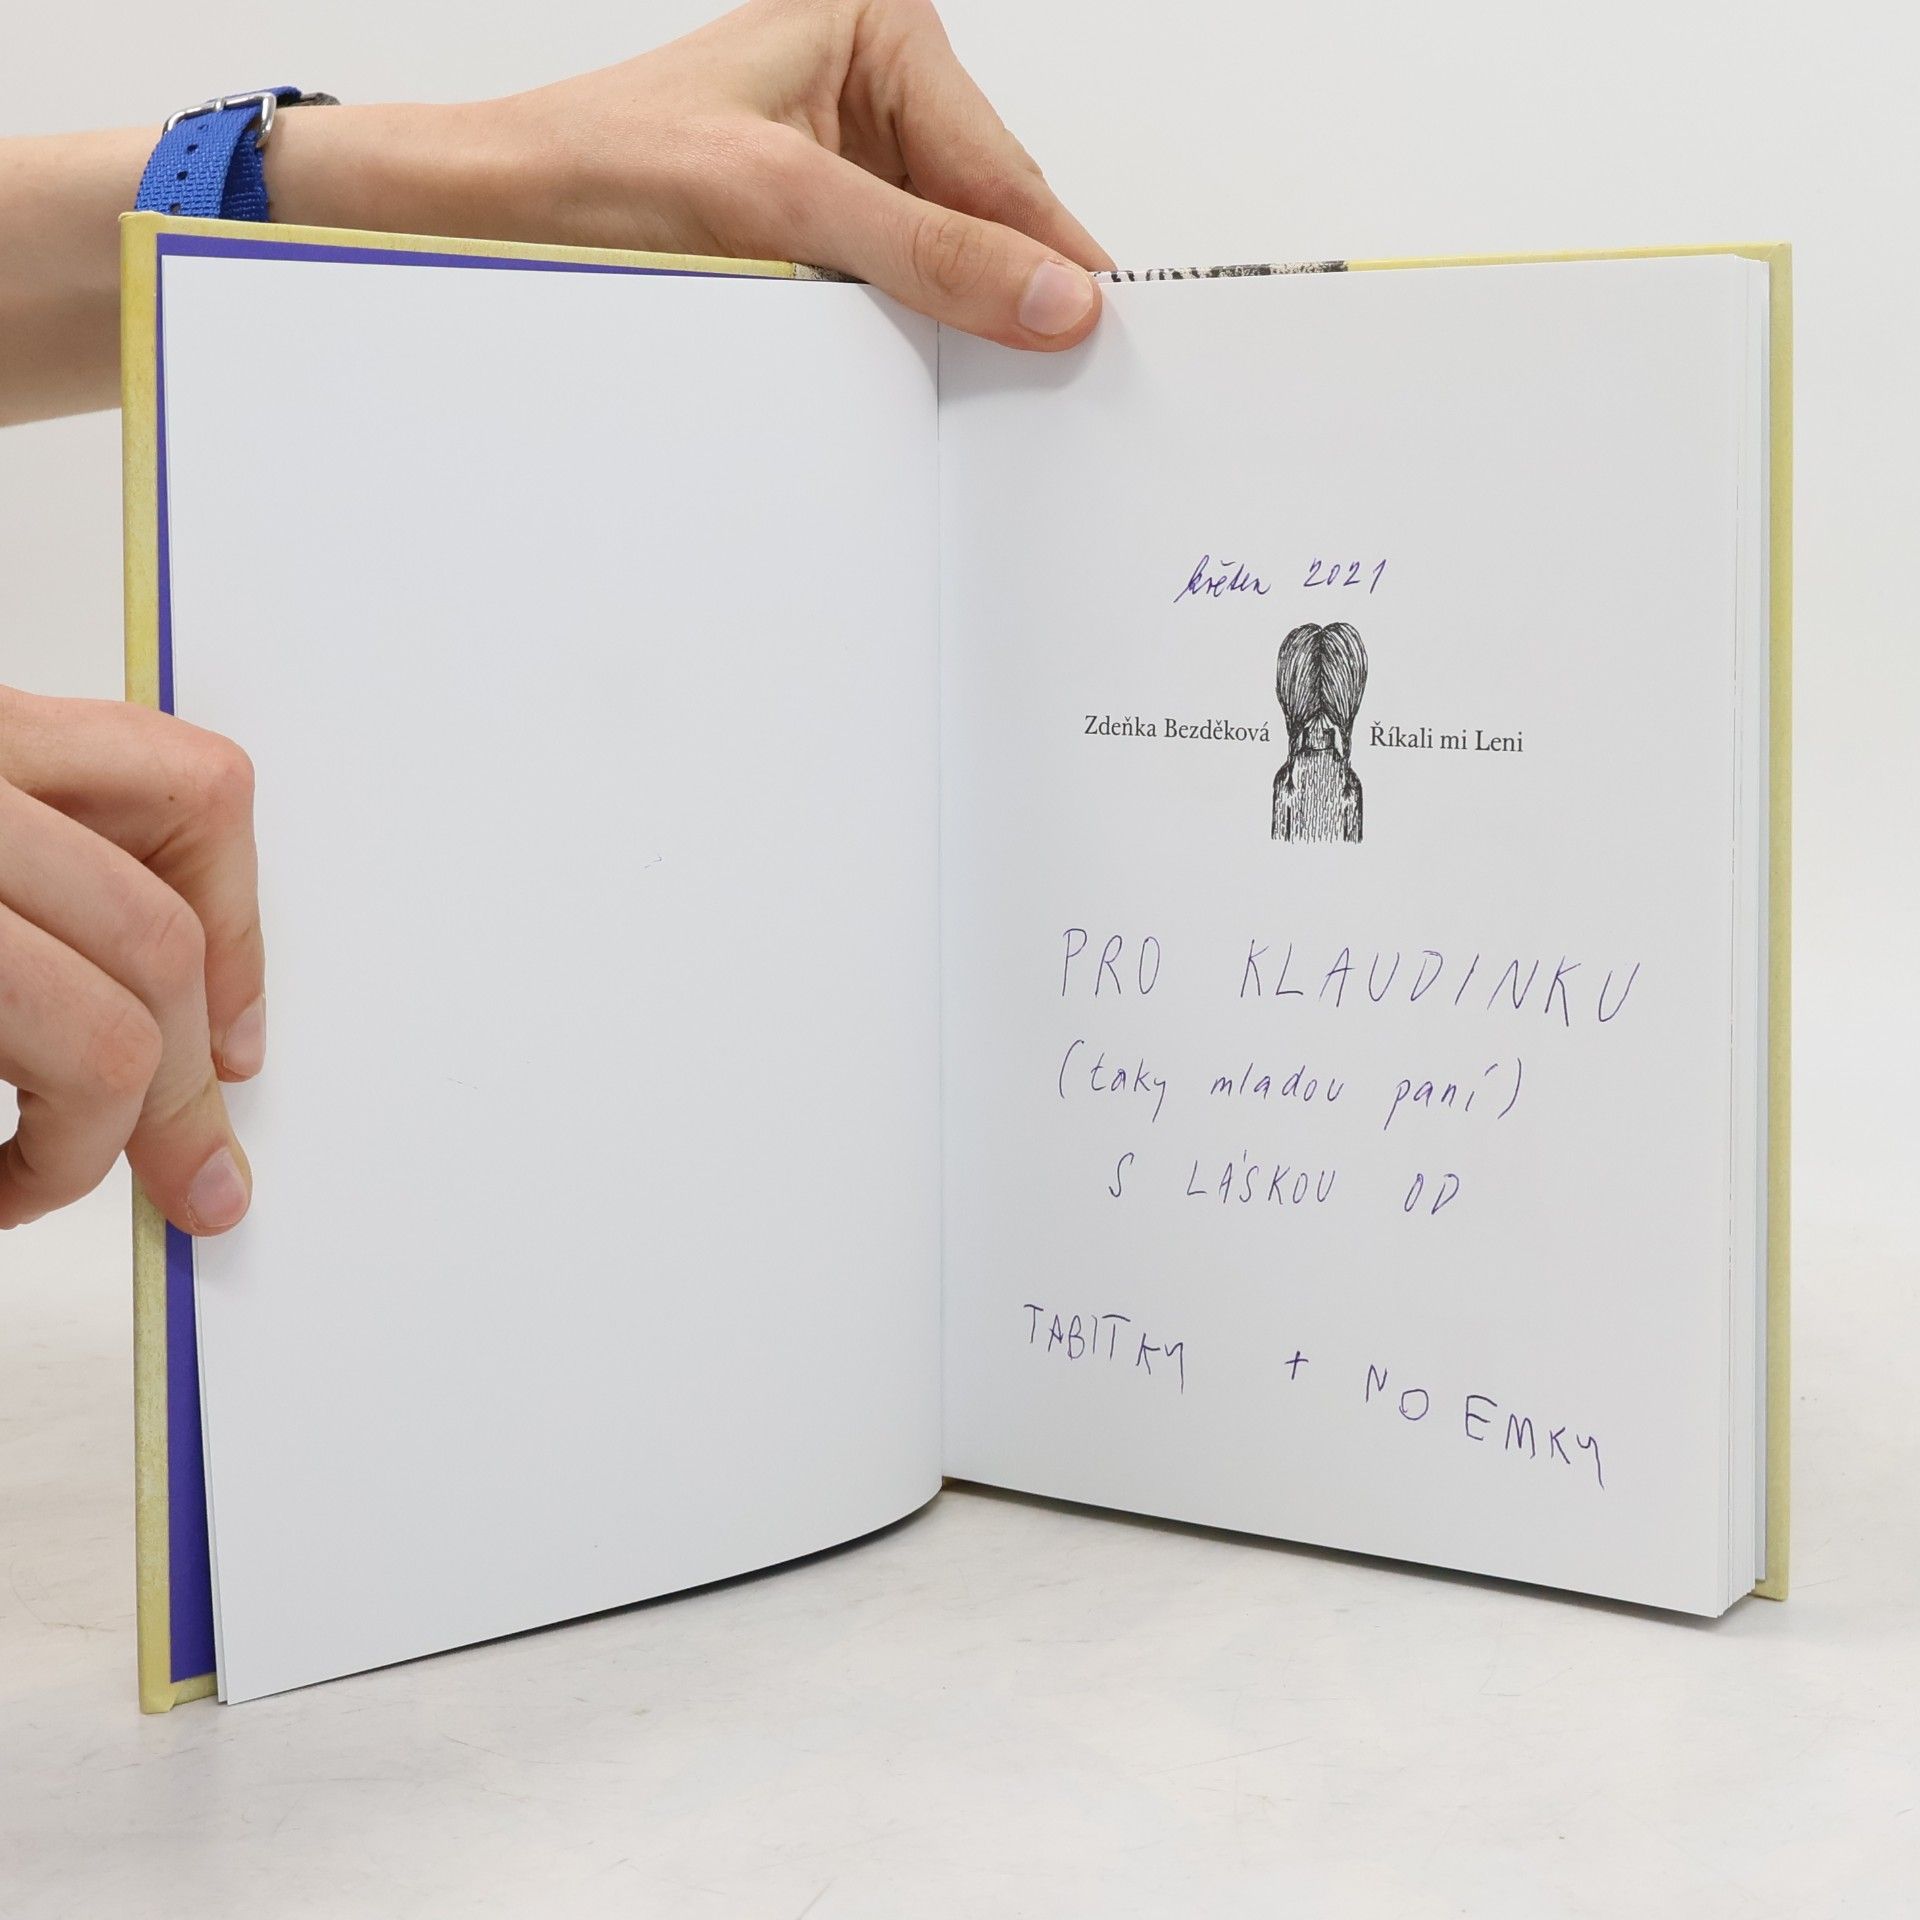 květen 2021
Zdeňka Bezděková Říkali mi Leni
PRO KLAUDINKU
(taky mladou paní)
S LÁSKOU OD
TABITKY + NOEMKY